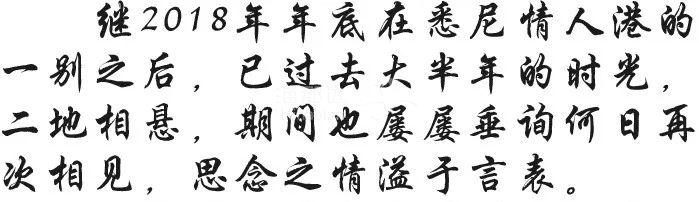 继2018年年底在悉尼情人港的
一别之后，已过去大半年的时光，
二地相悬，期间也屡屡垂询何日再
次相见，思念之情溢于言表。